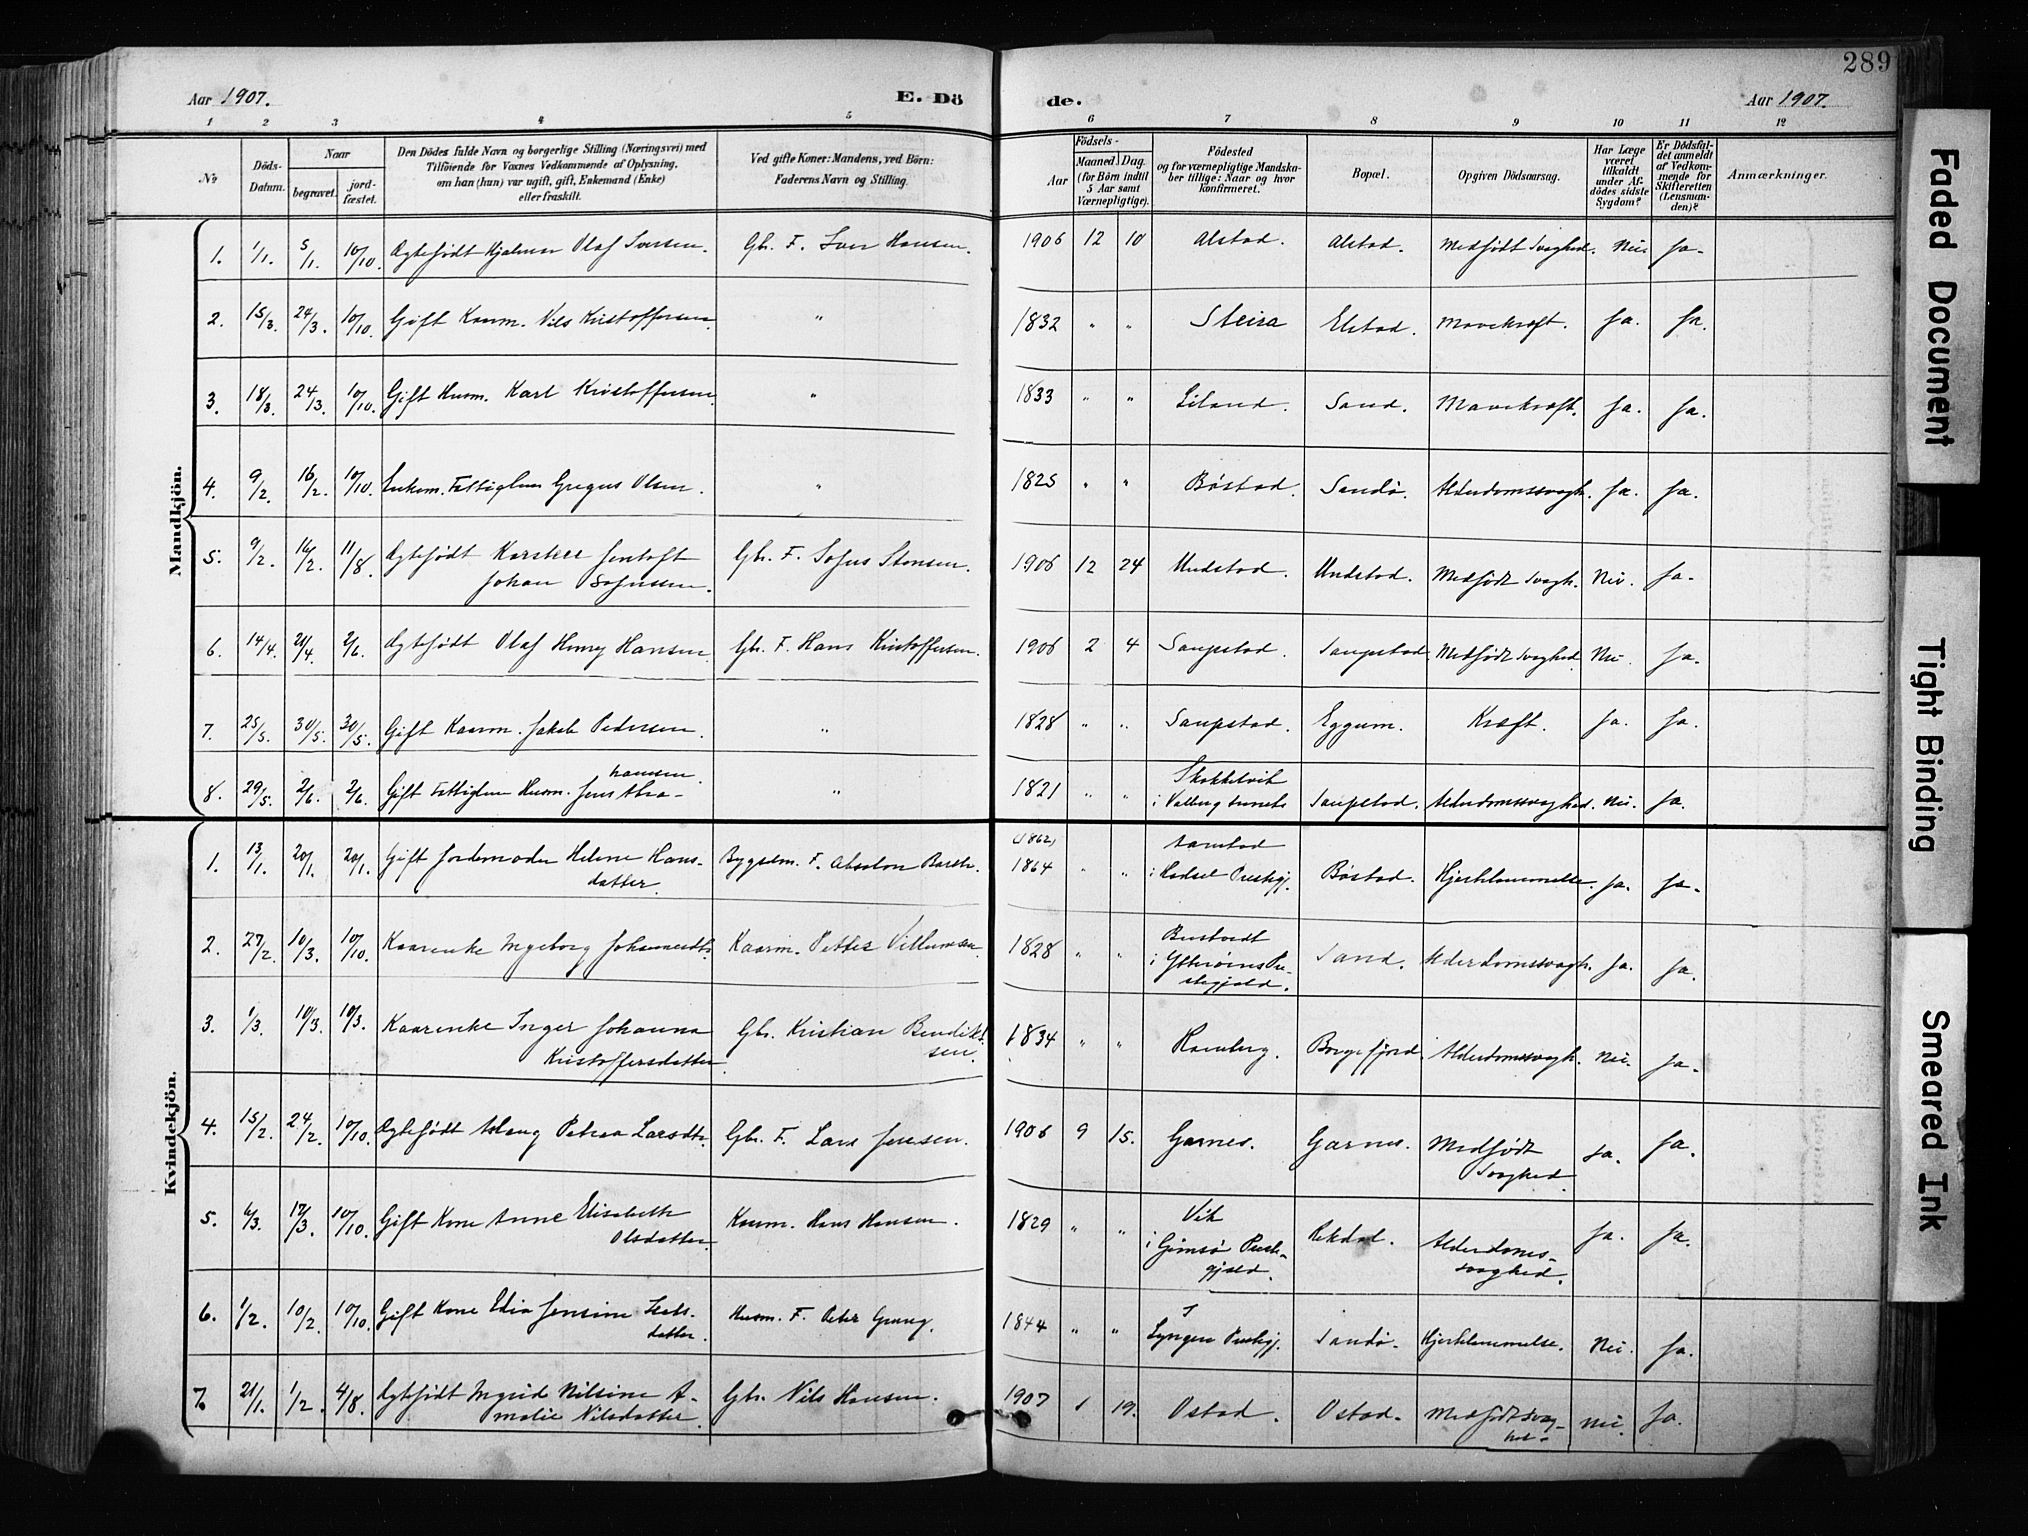 289
Aar 1907. E. Dö de. Aar 1907.
1 2 3 4 5 6 7 8 9 10 11 12
№
Döds-Datum.
Naar
begravet.
jord-fæstet.
Den Dödes fulde Navn og borgerlige Stilling (Næringsvei) med
Tilföiende for Voxnes Vedkommende af Oplysning,
om han (hun) var ugift, gift, Enkemand (Enke)
eller fraskilt.
Ved gifte Koner: Mandens, ved Börn:
Faderens Navn og Stilling.
Födsels-
Aar
Maaned. Dag.
(for Börn indtil
5 Aar samt
Værnepligtige).
Födested
og for værnepligtige Mandska-
ber tillige: Naar og hvor
konfirmeret.
Bopæl.
Opgiven Dödsaarsag.
Har Læge
været
tilkaldt
under Af-
dödes sidste
Sygdom?
Er Dödsfal-
det anmeldt
af Vedkom-
mende for
Skifteretten
(Lensman-
den)?
Anmærkninger.
Mandkjön.
1. 1/1. 5/1. 10/10. Ægtefødt Hjalmar Olaf Iversen. Gbr. F. Iver Hansen. 1906 12 10 Alstad. Alstad. Medfødt Svaghed. Nei. Ja.
2. 15/3. 24/3. 10/10. Gift Kaarm. Nils Kristoffersen. " 1832 " " Steira Elstad. Mavekræft. Ja. Ja.
3. 18/3. 24/3. 10/10. Gift Husm. Karl Kristoffersen. " 1833 " " Liland. Sand. Mavekræft. Ja. Ja.
4. 9/2. 16/2. 10/10. Enkem. Fattiglem Gregus Olsen. " 1825 " " Bøstad. Sandø. Alderdomssvagh. Ja. Ja.
5. 9/2. 16/2. 11/8. Ægtefødt Karsten Jentoft Gbr. F. Sofus Stensen. 1906 12 24 Unstad. Unstad. Medfødt Svagh. Nei. Ja.
Johan Sofussen.
6. 14/4. 21/4. 2/6. Ægtefødt Olaf Henry Hansen. Gbr. F. Hans Kristoffersen. 1906 2 4 Saupstad. Saupstad. Medfødt Svaghed. Nei. Ja.
7. 25/5. 30/5. 30/5. Gift Kaarm. Jakob Pedersen. " 1828 " " Saupstad. Eggum. Kræft. Ja. Ja.
8. 29/5. 2/6. 2/6. Gift Fattiglem Husm. Jens Abra-
hamsen. " 1821 " " i Valberg Saupstad. Alderdomssvaghed. Nei. Ja.
Kvindekjön.
1. 13/1. 20/1. 20/1. Gift Jordemoder Helene Hans-
datter. Bygselm. F. Absalon (1862) 1864 " " i Hadsel Præstgj. Bøstad. Hjertelammelse. Ja. Ja.
2. 27/2. 10/3. 10/10. Kaarenke Ingeborg Johannesdtr. Kaarm. Petter Villumsen. 1828 " " Sand. Alderdomssvagh. Ja. Ja.
3. 1/3. 10/3. 10/3. Kaarenke Inger Johanna Gbr. Kristian Bendikt-
Kristoffersdatter. sen. 1834 " " Ramberg. Borgefjord. Alderdomssvagh. Nei. Ja.
4. 15/2. 24/2. 10/10. Ægtefødt Aslaug Petrea Larsdtr. Gbr. F. Lars Jensen. 1906 9 15. Garnes. Garnes. Medfødt
Svaghed. Ja. Ja.
5. 6/3. 17/3. 10/10. Gift Kone Anne Elisabeth
Olsdatter. Kaarm. Hans Hansen. 1829 " " Vik
i Gimsø Præste-
gjeld. Rekdal. Alderdoms-
svaghed. Ja. Ja.
6. 1/2. 10/2. 10/10. Gift Kone Edia Jensine
datter. Husm. F. Peter 1844 " " I
Lyngen Præstgj. Sandø. Hjertelammelse. Nei. Ja.
7. 21/1. 1/2. 4/8. Ægtefødt Ingrid Nilsine A-
malie Nilsdatter. Gbr. Nils Hansen. 1907 1 19. Ostad. Ostad. Medfødt Svag-
hed. Nei. Ja.
Faded Document
Tight Binding
Smeared Ink